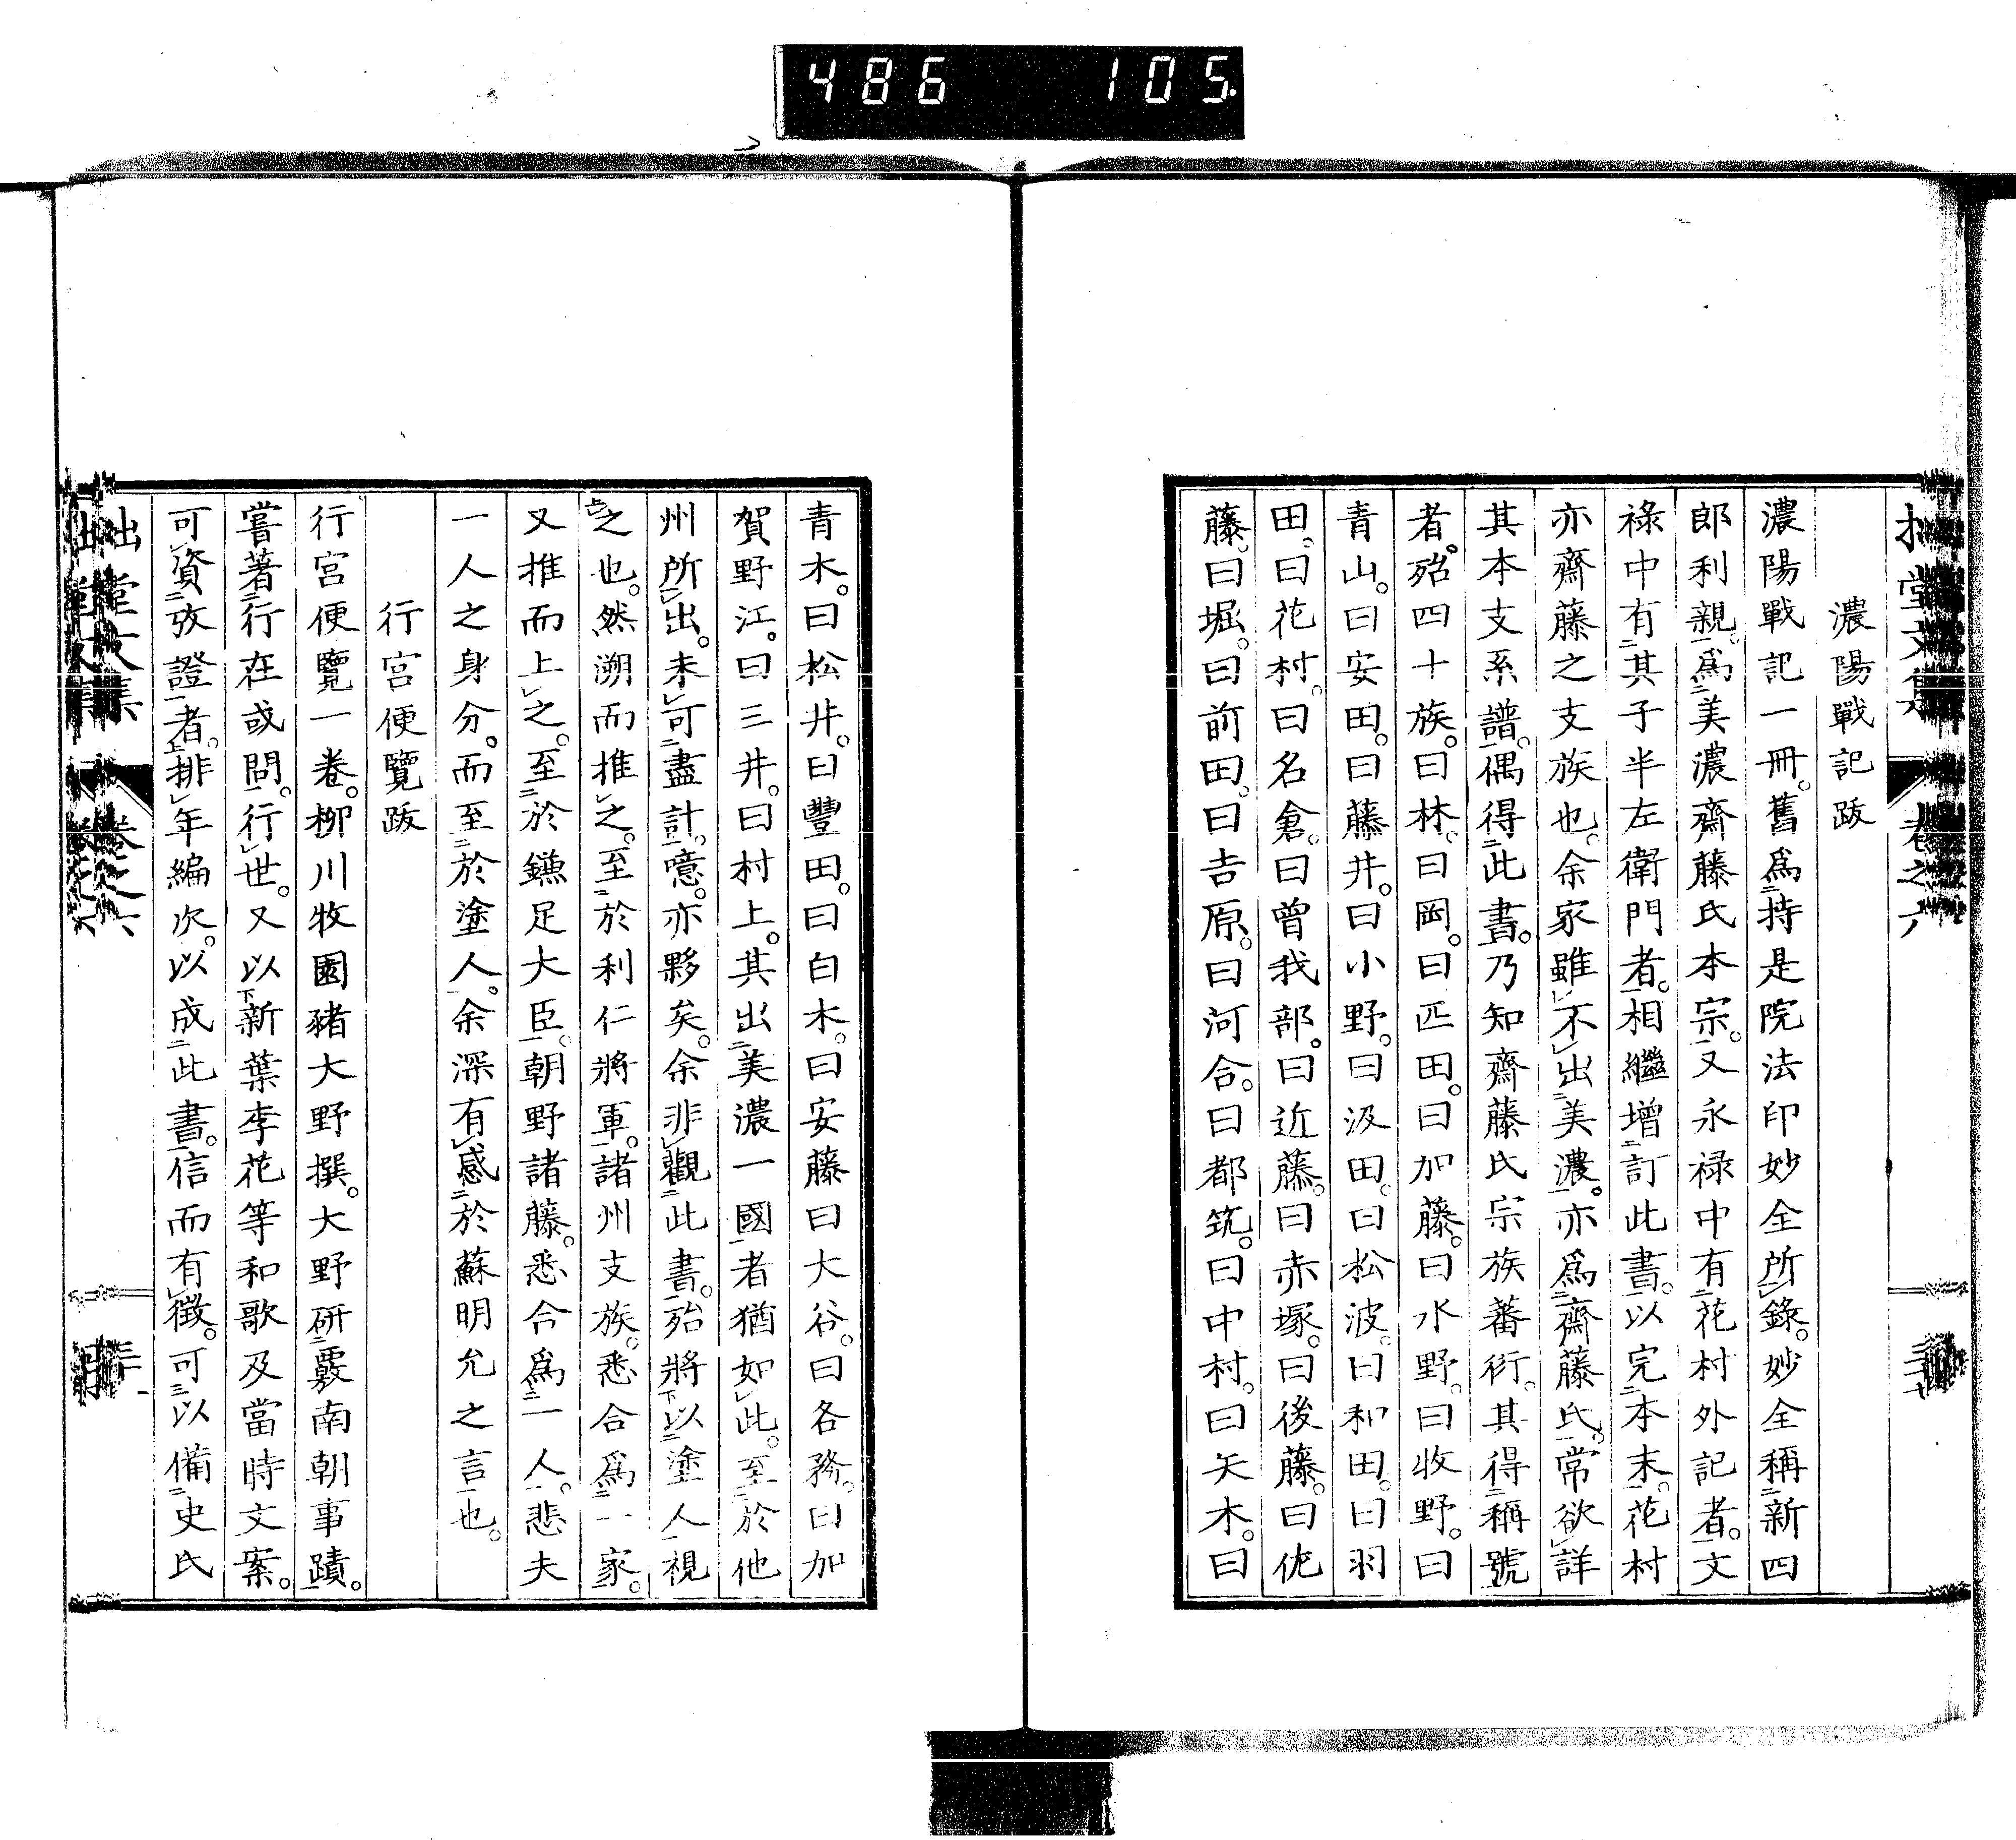 486 105.
濃陽戰記跋
濃陽戰記一冊。舊爲持是院法印妙全所錄。妙全稱新四
郎利親。爲美濃齋藤氏本宗。又永祿中有花村外記者。文
祿中有其子半左衛門者。相繼增訂此書。以完本末。花村
亦齋藤之支族也。余家雖不出美濃。亦爲齋藤氏。常欲詳
其本支系譜。偶得此書。乃知齋藤氏宗族蕃衍。其得稱號
者。殆四十族。曰林。曰岡。曰匹田。曰加藤。曰水野。曰收野。曰
青山。曰安田。曰藤井。曰小野。曰汲田。曰松波。曰和田。曰羽
田。曰花村。曰名倉。曰曾我部。曰近藤。曰赤塚。曰後藤。曰佗
藤。曰堀。曰前田。曰吉原。曰河合。曰都筑。曰中村。曰矢木。曰
青木。曰松井。曰豐田。曰白木。曰安藤曰大谷。曰各務。曰加
賀野江。曰三井。曰村上。其出美濃一國者猶如此。至於他
州所出。未可盡計。噫。亦夥矣。余非觀此書。殆將以塗人視
之也。然溯而推之。至於利仁將軍。諸州支族。悉合爲一家。
又推而上之。至於鎌足大臣。朝野諸藤。悉合爲一人。悲夫
一人之身分。而至於塗人。余深有感於蘇明允之言也。
行宮便覽跋
行宮便覽一卷。柳川牧園豬大野撰。大野研覈南朝事蹟。
嘗著行在或問。行世。又以新葉李花等和歌及當時文案。
可資攷證者。排年編次。以成此書。信而有徵。可以備史氏
拙堂文集 卷之六